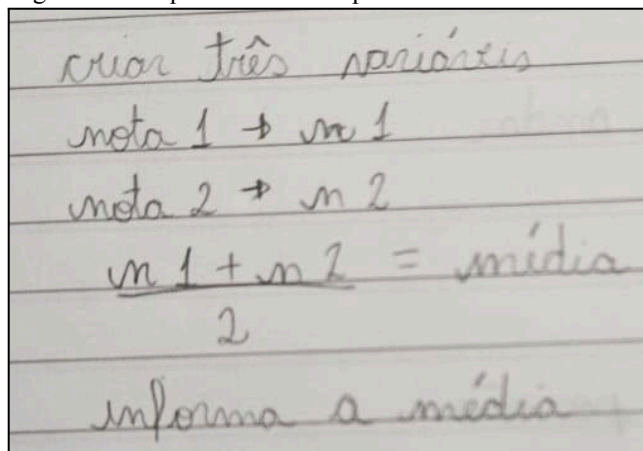 criar três variáveis
nota 1 → n1
nota 2 → n2
n1 + n2 = média
2
informa a média